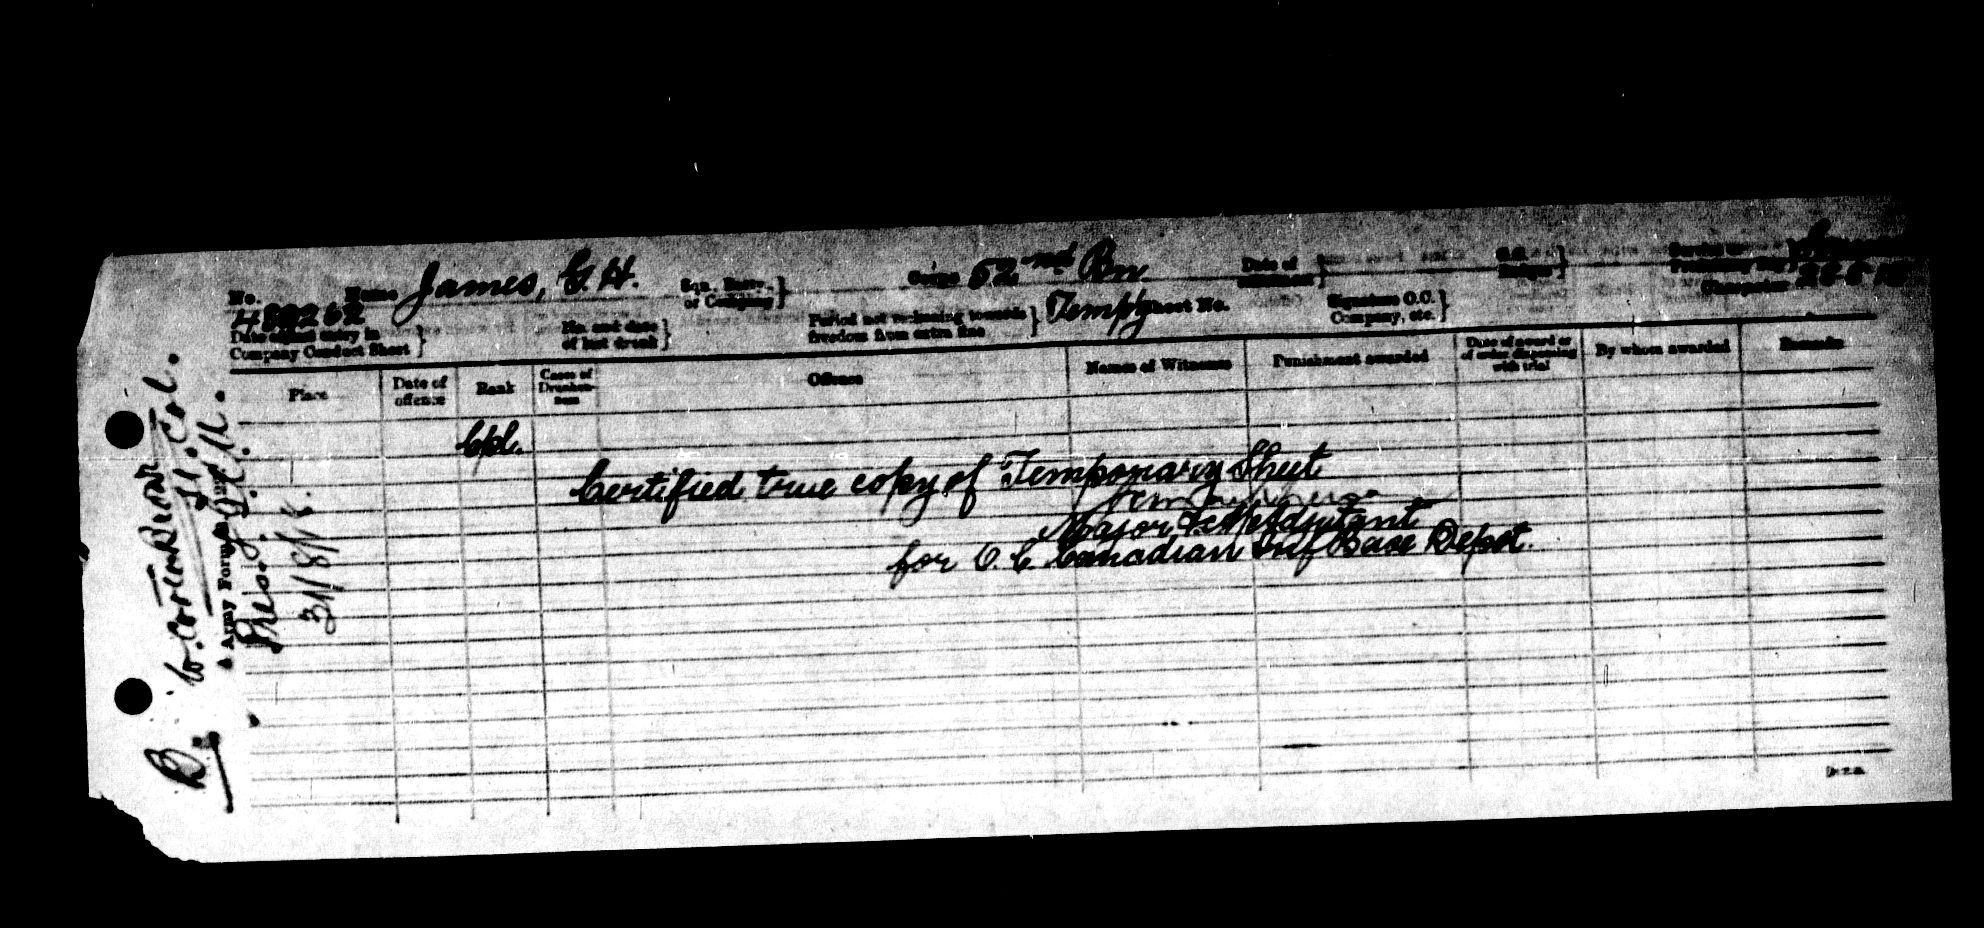 No. Name James, G.H. Sqn., Batty., or Company} Corps 52nd Bn Date of enlistment} G.C. Badges} Service or Proficiency Pay}
Date of last entry in Company Conduct Sheet} No. and date of last drunk} Period not reckoning towards freedom from extra fine} Tempy Sheet No. Signature O.C. Company, etc.} Character
Place Date of offence Rank Cases of Drunkenness Offence Names of Witnesses Punishment awarded Date of award or of order dispensing with trial By whom awarded Remarks
Cpl.
Certified true copy of Temporary Sheet
Major Adjutant
for O.C. Canadian Inf Base Depot.
P.T.O.
B.
Lt. Col.
Army Form
Pres.
31/8/18.